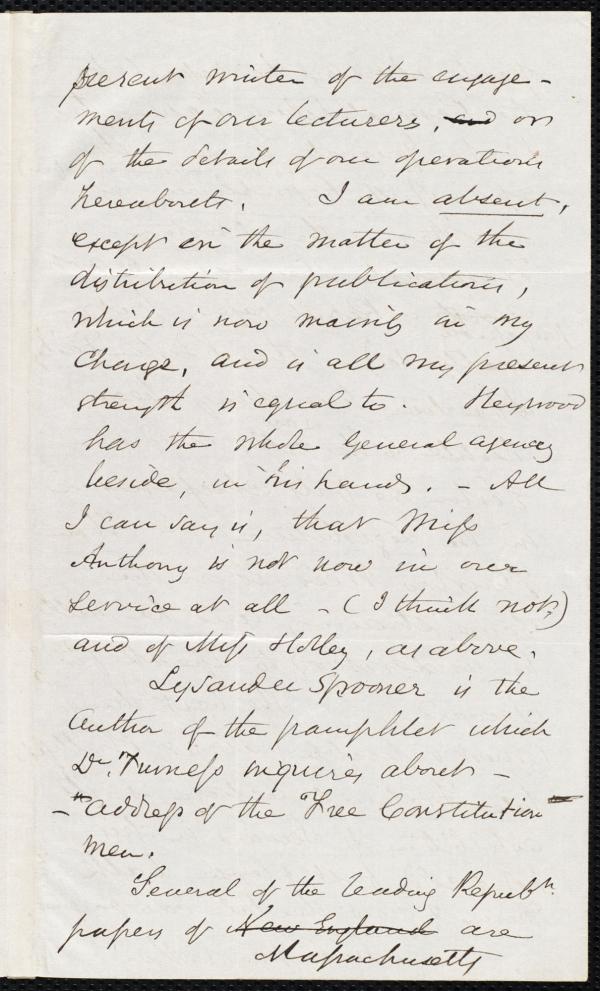 present writer of the engage-
ments of our lecturers, and or
of the details of our operations
hereabouts. I am absent,
except in the matter of the
distribution of publications,
which is now mainly in my
charge, and is all my present
strength is equal to. Heywood
has the whole general agency
beside, in his hands. - All
I can say is, that Miss
Anthony is not now in our
service at all - (I think not,)
and of Miss Holley, as above.
Lysander Spooner is the
author of the pamphlet which
Dr. Furness inquires about -
- "Address of the Free Constitution"
men.
Several of the leading Repubn.
papers of New England are
Massachusetts